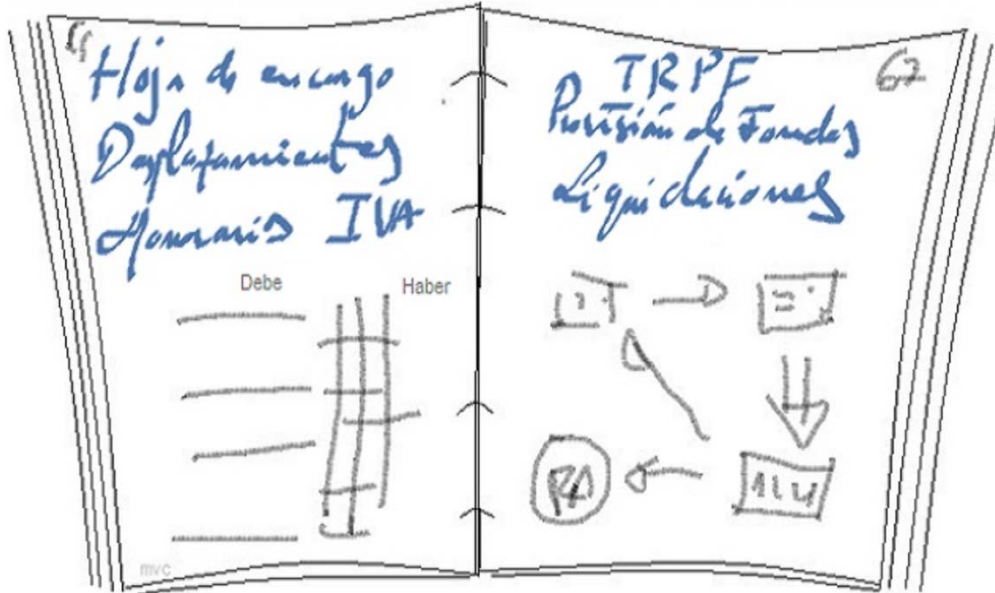 Hoja de encargo
Desplazamientos
Honorarios IVA
Debe Haber
mvc
62
IRPF
Provisión de Fondos
Liquidaciones